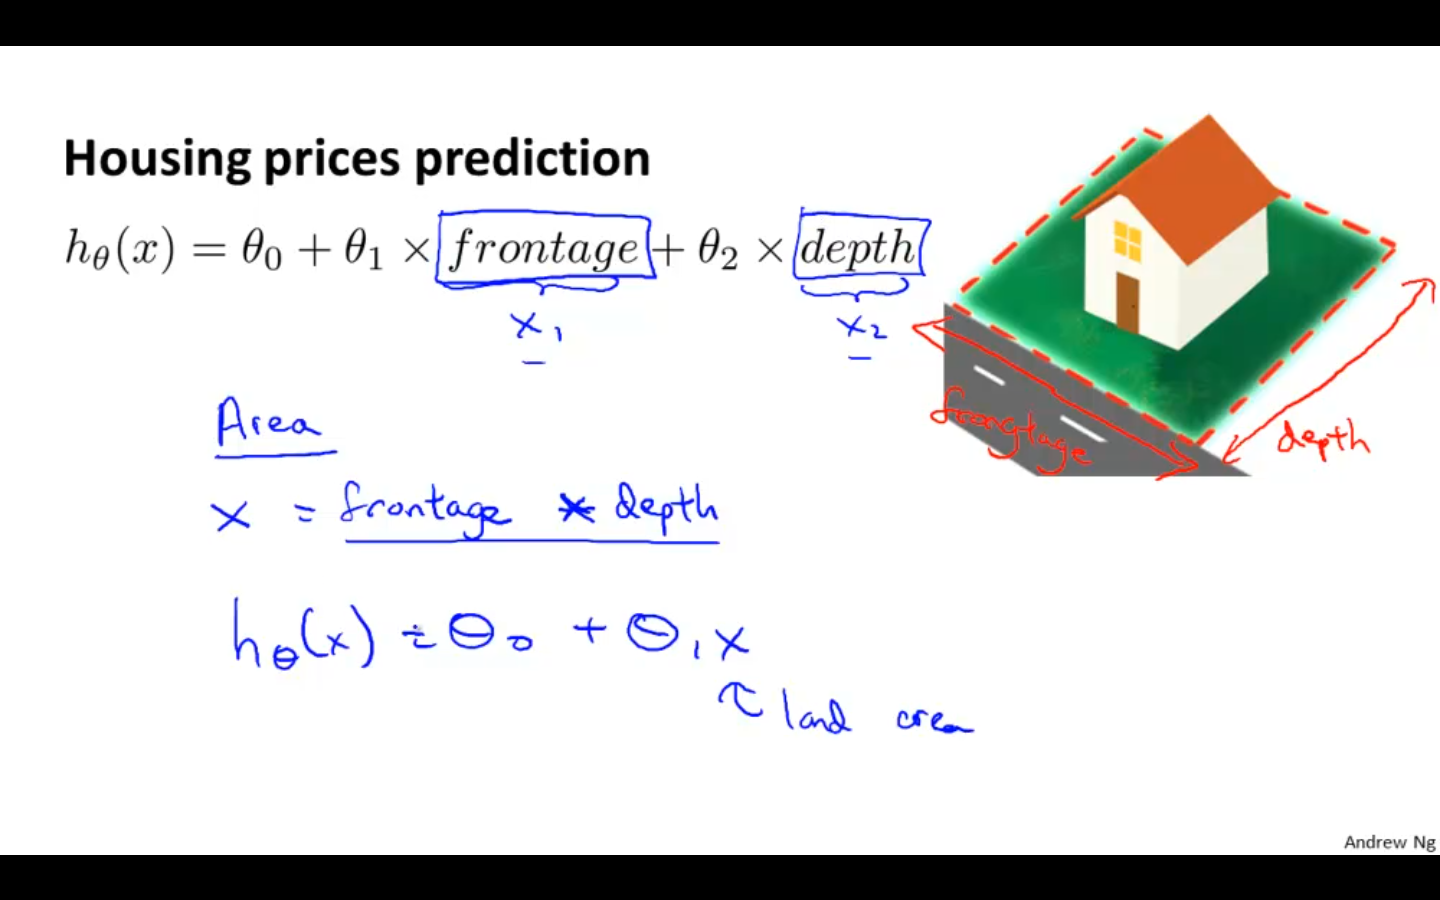 Housing prices prediction
hθ(x) = θ0 + θ1 × frontage + θ2 × depth
x1 x2
frongtage
depth
Area
x = frontage * depth
hθ(x) = θ0 + θ1 x
land area
Andrew Ng